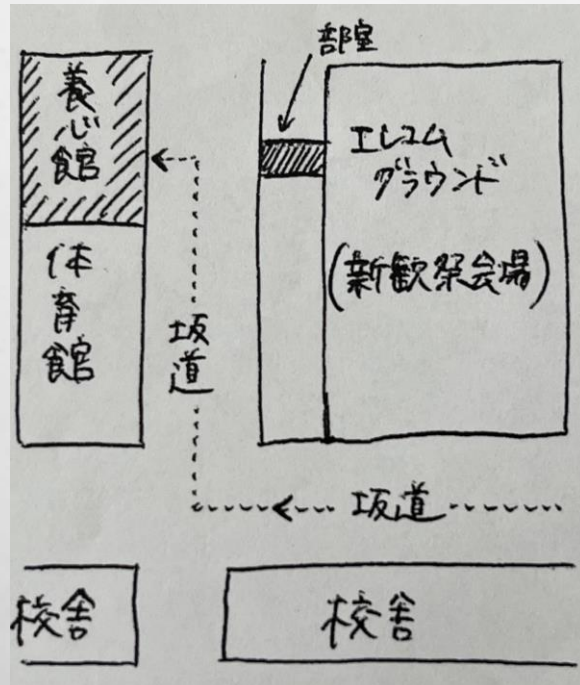 部室
養心館
エレコム
グラウンド
(新歓祭会場)
体育館
坂道
坂道
校舎
校舎